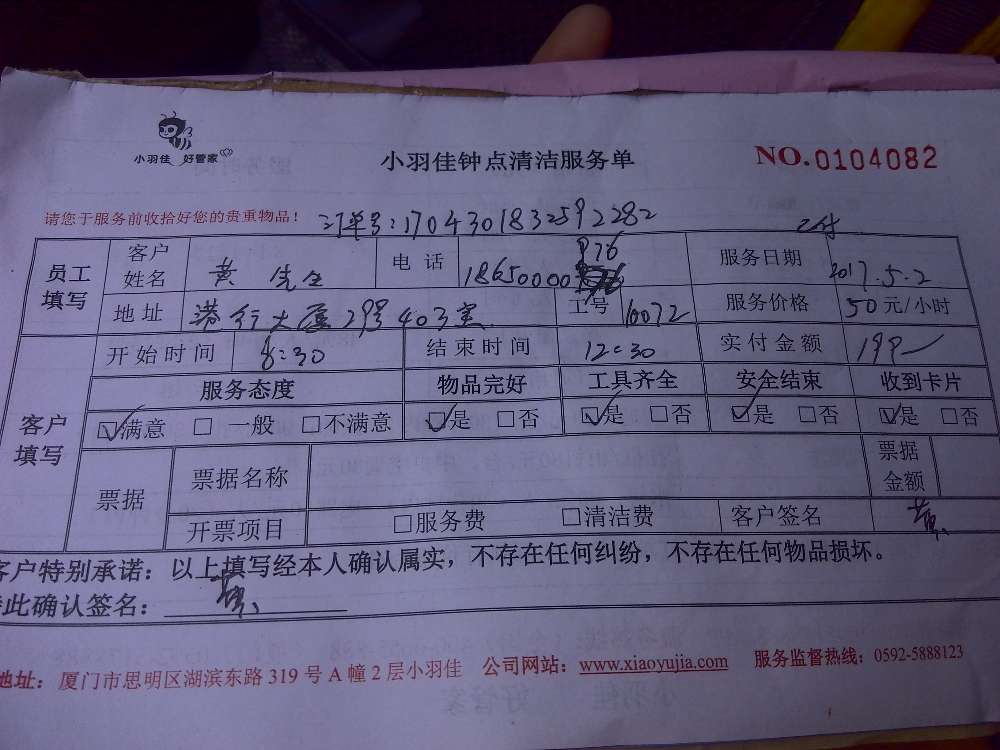 小羽佳 好管家
小羽佳钟点清洁服务单
NO.0104082
请您于服务前收拾好您的贵重物品！
订单号:170430183259 2282
已付
员工填写 客户姓名 黄先生 电话 18650000976 服务日期 2017.5.2
地址 港行大厦2号403室 工号 16072 服务价格 50元/小时
客户填写 开始时间 8:30 结束时间 12:30 实付金额 199
服务态度 物品完好 工具齐全 安全结束 收到卡片
☑满意 □一般 □不满意 ☑是 □否 ☑是 □否 ☑是 □否 ☑是 □否
票据 票据名称 票据金额
开票项目 □服务费 □清洁费 客户签名 黄
客户特别承诺：以上填写经本人确认属实，不存在任何纠纷，不存在任何物品损坏。
此确认签名：黄
地址：厦门市思明区湖滨东路319号A幢2层小羽佳 公司网站：www.xiaoyujia.com 服务监督热线：0592-5888123